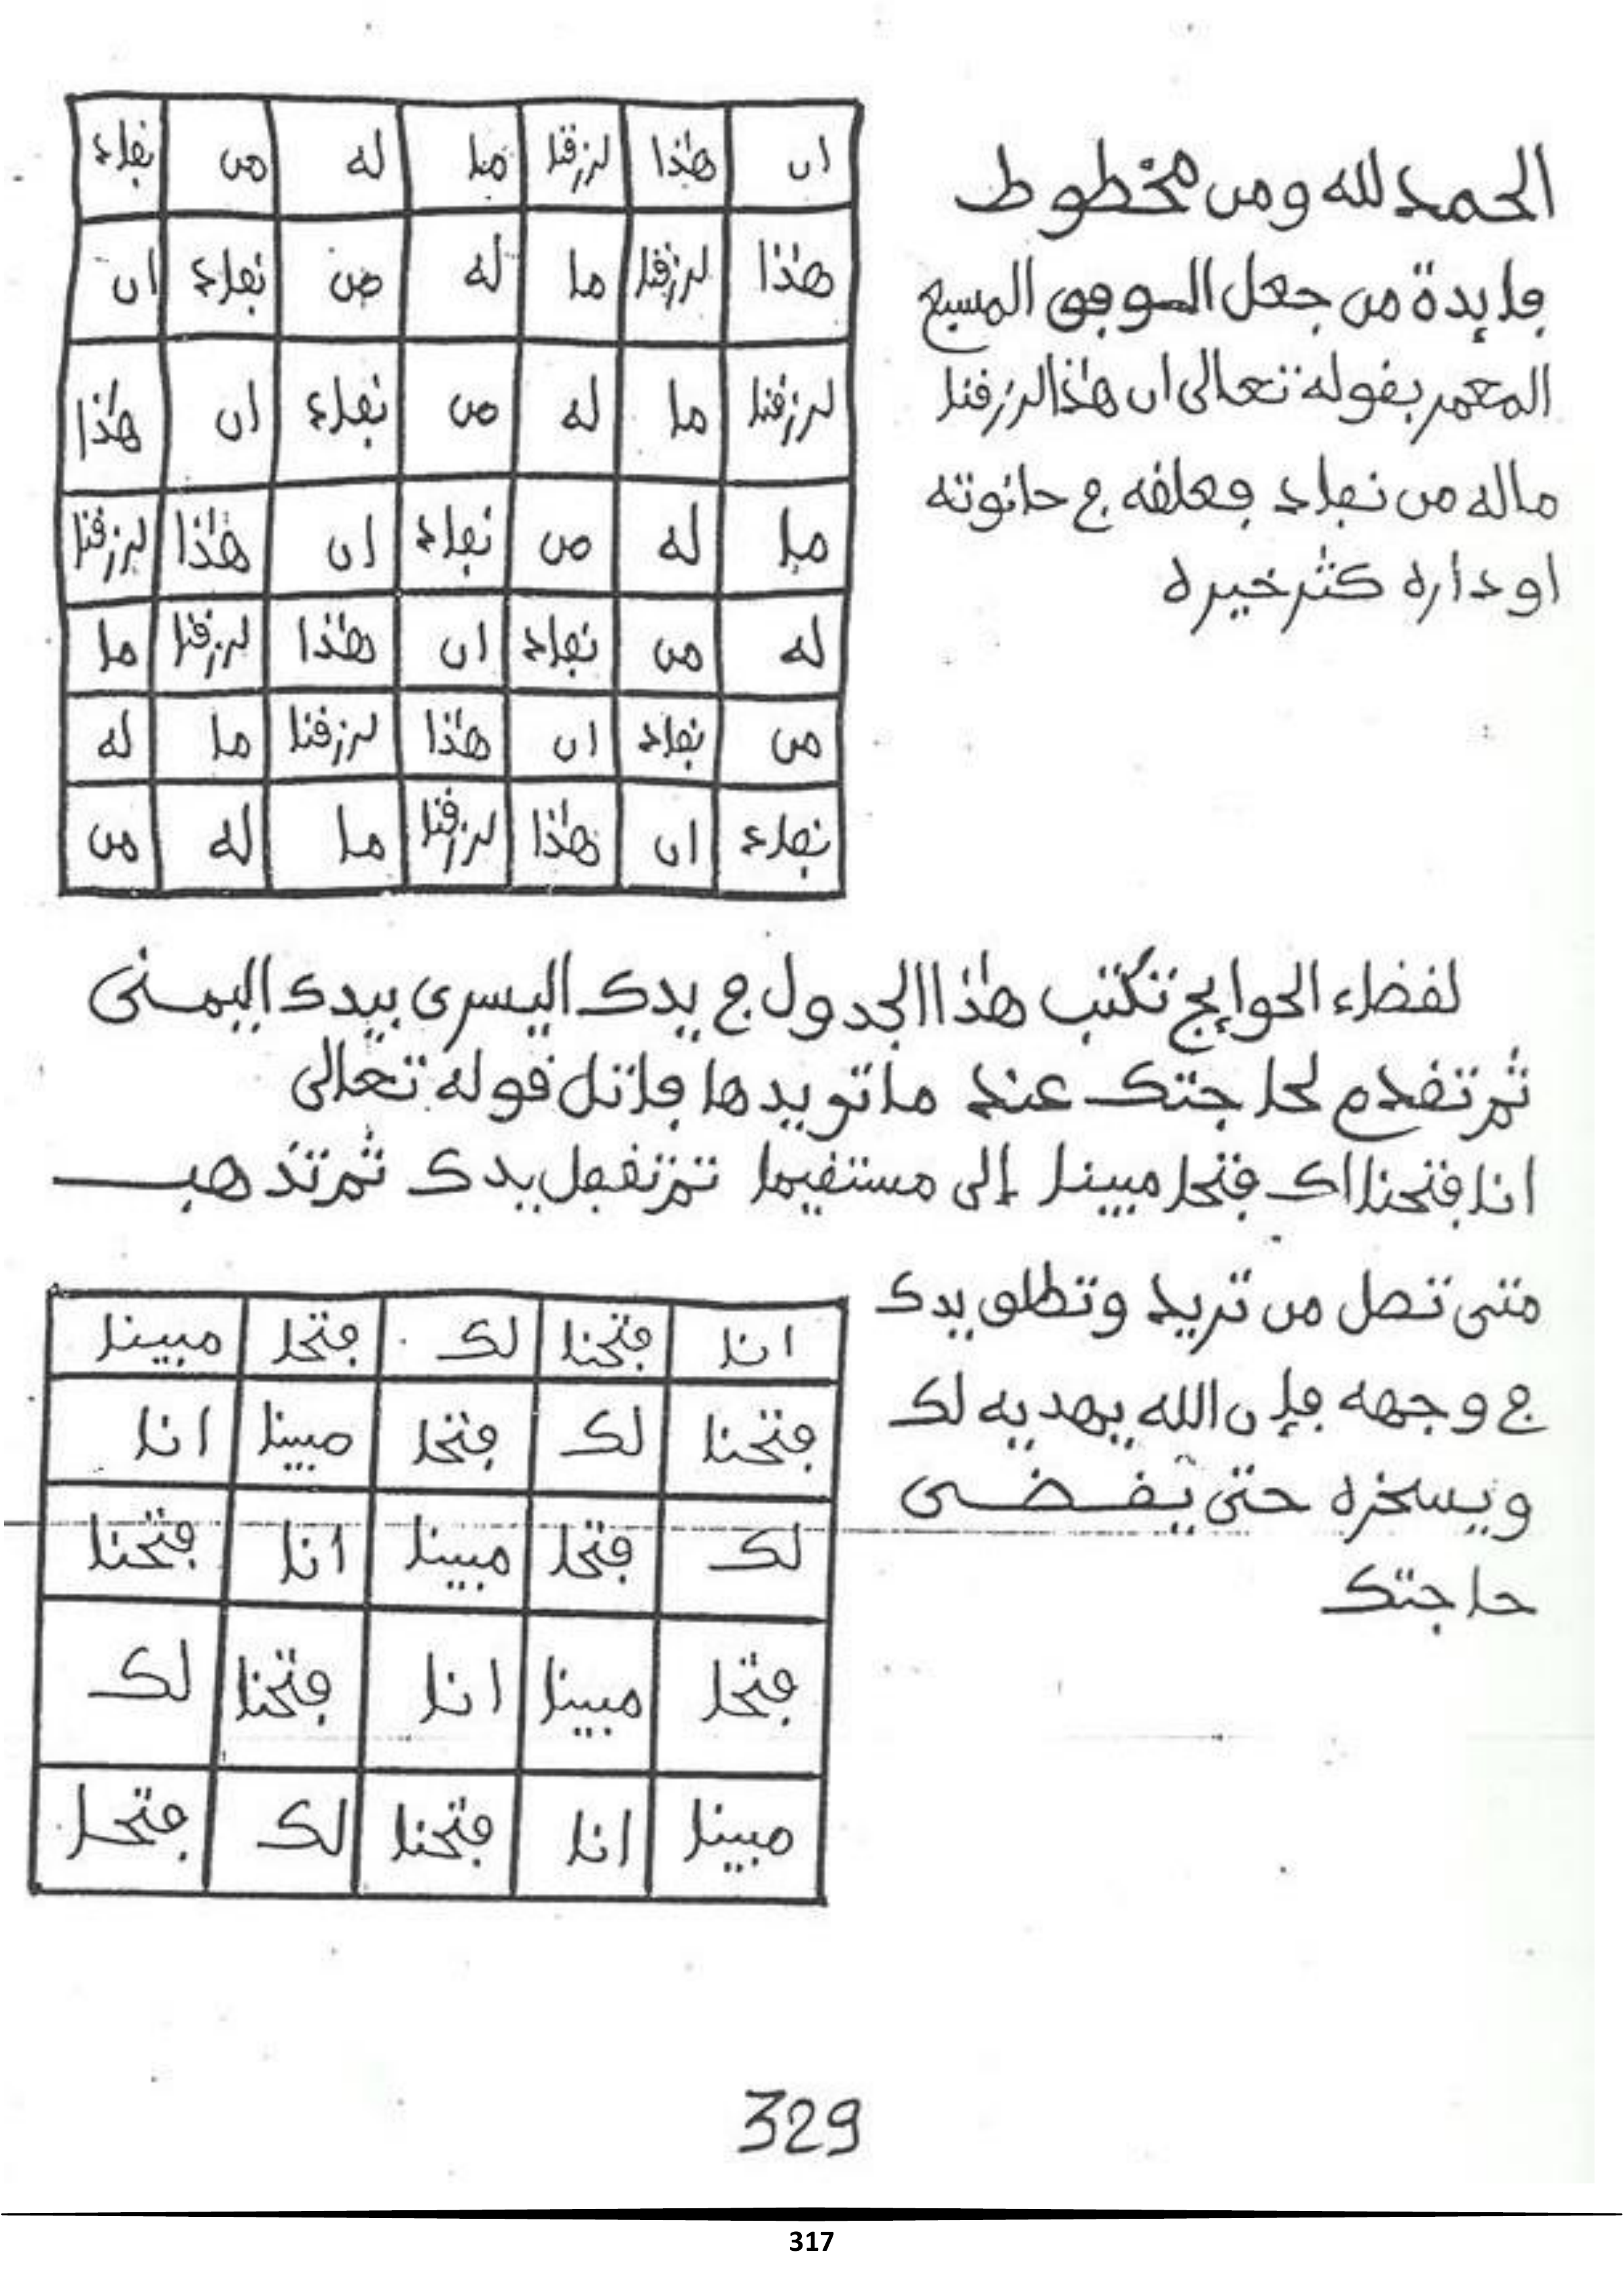 الحمد لله ومن مخطوط
فايدة من جعل الوفق المسبع
المعمر بقوله تعالى ان هذا لرزقنا
ماله من نفاد وعلقه في حانوته
او داره كثر خيره
ان هذا لرزقنا ما له من نفاد
هذا لرزقنا ما له من نفاد ان
لرزقنا ما له من نفاد ان هذا
ما له من نفاد ان هذا لرزقنا
له من نفاد ان هذا لرزقنا ما
من نفاد ان هذا لرزقنا ما له
نفاد ان هذا لرزقنا ما له من
لقضاء الحوايج تكتب هذا الجدول في يدك اليسرى بيدك اليمنى
ثم تقدم لحاجتك عند ما تريدها فاتل قوله تعالى
انا فتحنا لك فتحا مبينا إلى مستقيما ثم تقفل يدك ثم تذهب
متى تصل من تريد وتطلق يدك
في وجهه فإن الله يهديه لك
ويسخره حتى يقضى
حاجتك
انا فتحنا لك فتحا مبينا
فتحنا لك فتحا مبينا انا
لك فتحا مبينا انا فتحنا
فتحا مبينا انا فتحنا لك
مبينا انا فتحنا لك فتحا
329
317